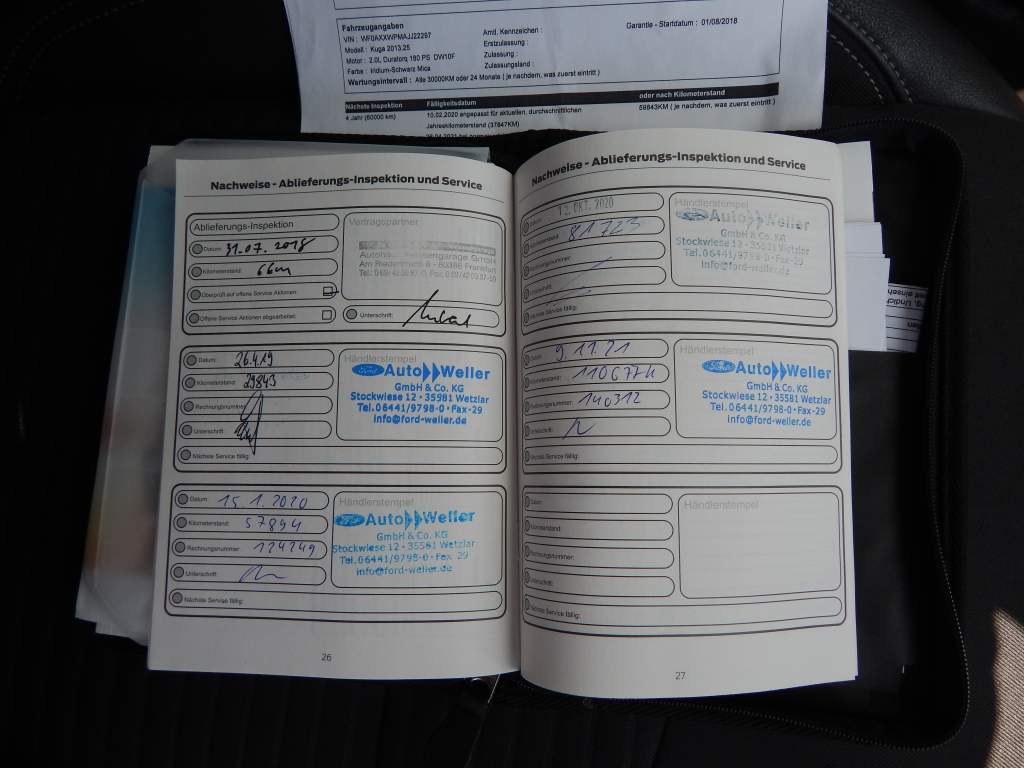 Fahrzeugangaben
VIN : WF0AXXWPMAJJ22297
Modell : Kuga 2013.25
Motor : 2.0L Duratorq 180 PS DW10F
Farbe : Iridium-Schwarz Mica
Wartungsintervall : Alle 30000KM oder 24 Monate ( je nachdem, was zuerst eintritt )
Amtl. Kennzeichen :
Erstzulassung :
Zulassung :
Zulassungsland :
Garantie - Startdatum : 01/08/2018
Nächste Inspektion Fälligkeitsdatum oder nach Kilometerstand
4 Jahr (60000 km) 10.02.2020 angepasst für aktuellen, durchschnittlichen 59843KM ( je nachdem, was zuerst eintritt )
Jahreskilometerstand (37847KM)
Nachweise - Ablieferungs-Inspektion und Service
Ablieferungs-Inspektion
Datum: 31.07.2018
Kilometerstand: 66m
Überprüft auf offene Service Aktionen:
Offene Service Aktionen abgearbeitet:
Vertragspartner
Unterschrift:
Datum: 26.4.19
Kilometerstand: 29843
Rechnungsnummer:
Unterschrift:
Nächste Service fällig:
Händlerstempel
Ford Auto Weller
GmbH & Co. KG
Stockwiese 12 · 35581 Wetzlar
Tel. 06441/9798-0 · Fax -29
info@ford-weller.de
Datum: 15.1.2020
Kilometerstand: 57894
Rechnungsnummer: 124249
Unterschrift:
Nächste Service fällig:
Händlerstempel
Ford Auto Weller
GmbH & Co. KG
Stockwiese 12 · 35581 Wetzlar
Tel. 06441/9798-0 · Fax -29
info@ford-weller.de
26
Nachweise - Ablieferungs-Inspektion und Service
Datum: 12. OKT. 2020
Kilometerstand: 81723
Rechnungsnummer:
Unterschrift:
Nächste Service fällig:
Händlerstempel
Ford Auto Weller
GmbH & Co. KG
Stockwiese 12 · 35581 Wetzlar
Tel. 06441/9798-0 · Fax -29
info@ford-weller.de
Datum: 9.11.21
Kilometerstand: 110677k
Rechnungsnummer: 140312
Unterschrift:
Nächste Service fällig:
Händlerstempel
Ford Auto Weller
GmbH & Co. KG
Stockwiese 12 · 35581 Wetzlar
Tel. 06441/9798-0 · Fax -29
info@ford-weller.de
Datum:
Kilometerstand:
Rechnungsnummer:
Unterschrift:
Nächste Service fällig:
Händlerstempel
27